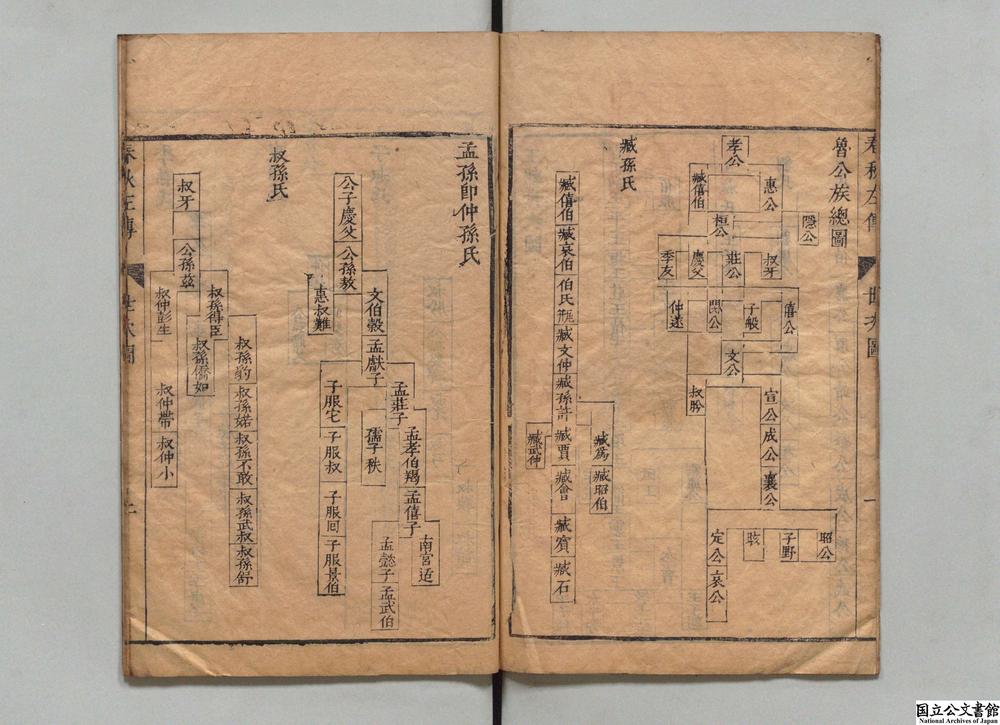 春秋左傳
世次圖
一
魯公族總圖
孝公
惠公
臧僖伯
隱公
桓公
叔牙
莊公
慶父
季友
僖公
子般
閔公
仲遂
文公
宣公
成公
襄公
叔肹
昭公
子野
定公
哀公
臧孫氏
臧僖伯
臧哀伯
伯氏瓶
臧文仲
臧孫許
臧賈
臧會
臧賓
臧石
臧爲
臧昭伯
臧武仲
孟孫即仲孫氏
公子慶父
公孫敖
文伯穀
惠叔難
孟獻子
孟莊子
孟孝伯羯
孟僖子
南宮适
孟懿子
孟武伯
孺子秩
子服它
子服叔
子服回
子服景伯
叔孫氏
叔牙
公孫茲
叔孫得臣
叔仲彭生
叔孫豹
叔孫婼
叔孫不敢
叔孫武叔
叔孫舒
叔孫僑如
叔仲帶
叔仲小
春秋左傳
世次圖
国立公文書館
National Archives of Japan